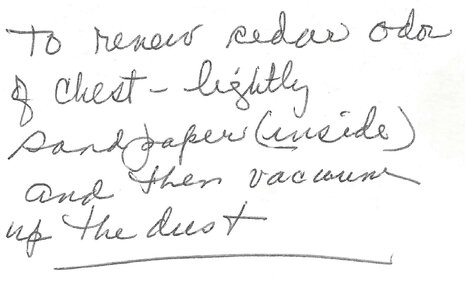 To renew cedar odor
of chest - lightly
sandpaper (inside)
and then vacuum
up the dust